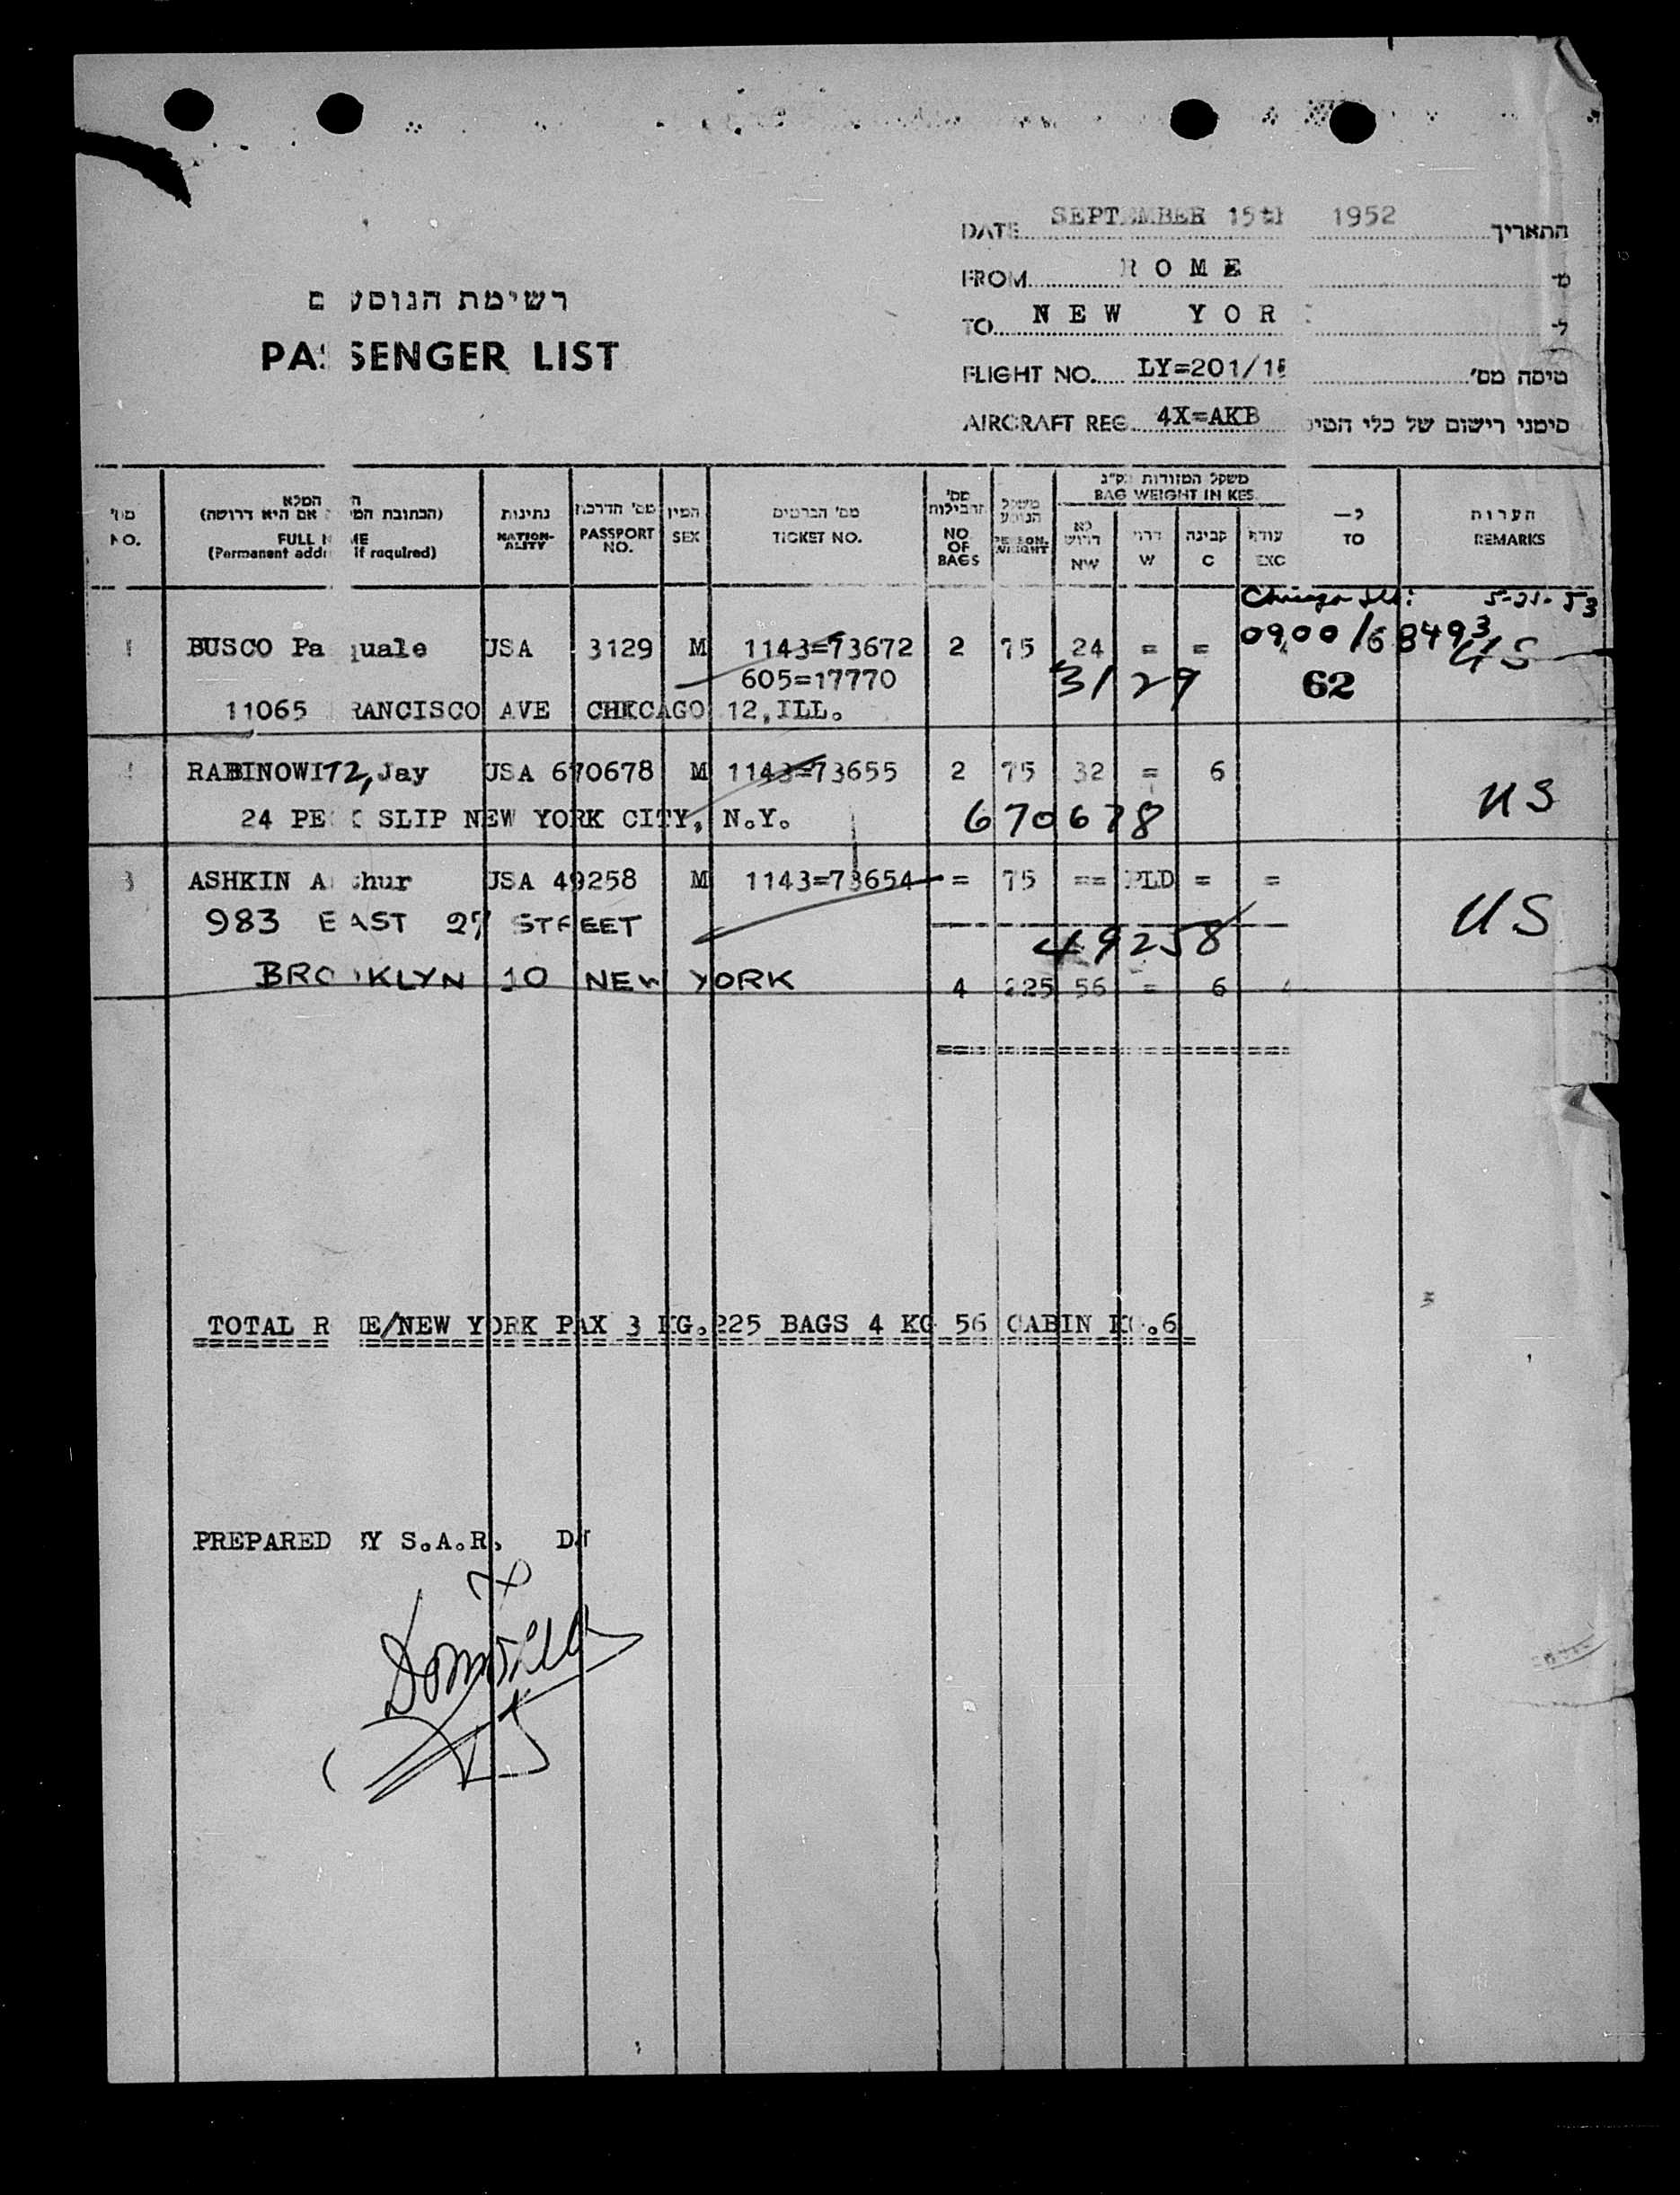 DATE SEPTEMBER 15th 1952 התאריך
FROM ROME מ-
רשימת הנוסעים
TO NEW YOR ל-
PASSENGER LIST
FLIGHT NO. LY=201/15 טיסה מס'
AIRCRAFT REG. 4X=AKB סימני רישום של כלי הטיס
משקל המזודות בק"ג
BAG WEIGHT IN KGS.
מס' NO.
השם המלא (הכתובת המלאה אם היא דרושה) FULL NAME (Permanent address if required)
נתינות NATION-ALITY
מס' הדרכון PASSPORT NO.
המין SEX
מס' הכרטיס TICKET NO.
מס' החבילות NO OF BAGS
משקל הנוסע PERSON. WEIGHT
לא דרוש NW
דרוי W
קבינה C
עודף EXC
ל— TO
הערות REMARKS
Chicago Ill: 5-21-53
1 BUSCO Pasquale USA 3129 M 1143=73672 2 75 24 = = 0900/68493 US
605=17770 3129 62
11065 FRANCISCO AVE CHKCAGO 12, ILL.
2 RABINOWITZ, Jay USA 670678 M 1143=73655 2 75 32 = 6 US
24 PECK SLIP NEW YORK CITY, N.Y. 670678
3 ASHKIN Arthur USA 49258 M 1143=73654 = 75 == PLD = = US
983 EAST 27 STREET 49258
BROOKLYN 10 NEW YORK 4 225 56 = 6
TOTAL ROME/NEW YORK PAX 3 KG.225 BAGS 4 KG 56 CABIN KG.6
PREPARED BY S.A.R.